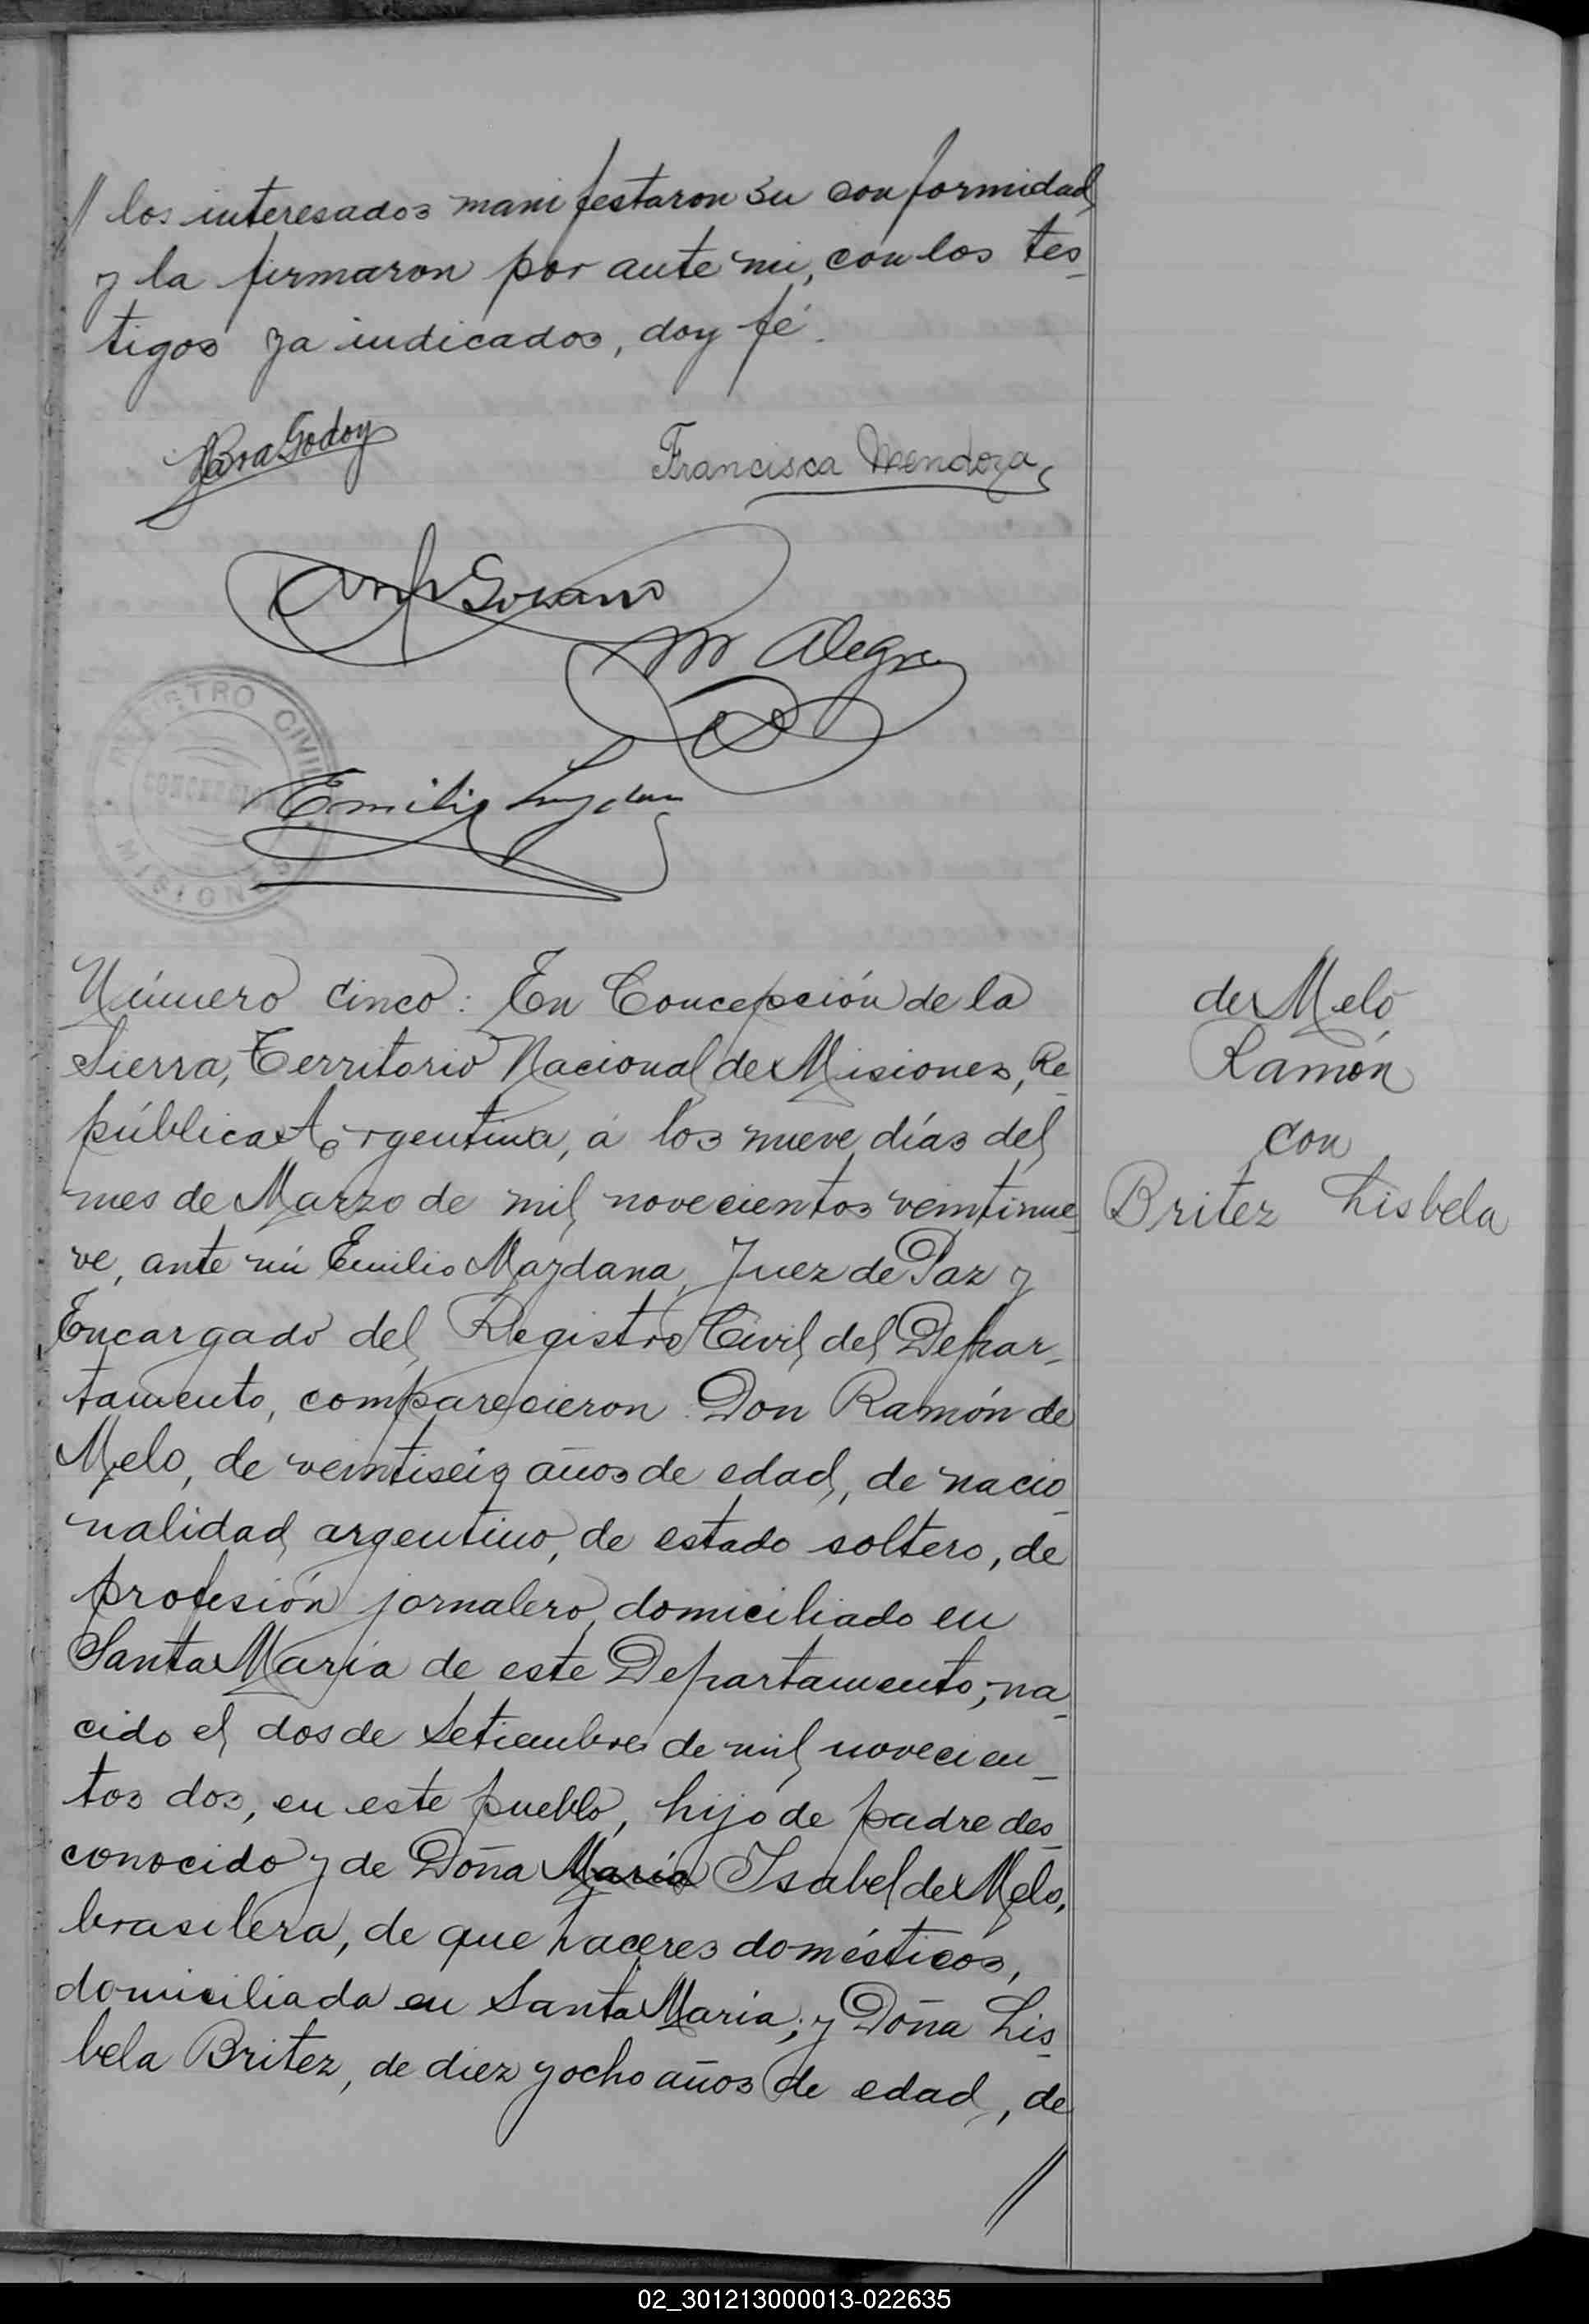 // los interesados manifestaron su conformidad
y la firmaron por ante mi, con los tes_
tigos ya indicados, doy fé.
Godoy
Francisca Mendoza
M Alegre
Emilio
REGISTRO CIVIL
CONCEPCION
MISIONES
Número cinco: En Concepción de la
Sierra, Territorio Nacional de Misiones, Re_
pública Argentina, á los nueve días del
mes de Marzo de mil novecientos veintinue
ve, ante mi Emilio Maydana, Juez de Paz y
Encargado del Registro Civil del Depar_
tamento, comparecieron: Don Ramón de
Melo, de veintiseis años de edad, de nacio_
nalidad argentino, de estado soltero, de
profesión jornalero, domiciliado en
Santa María de este Departamento, na_
cido el dos de Setiembre de mil novecien_
tos dos, en este pueblo, hijo de padre des_
conocido y de Doña María Isabel de Melo,
brasilera, de que haceres domésticos,
domiciliada en Santa María; y Doña Lis_
bela Britez, de diez y ocho años de edad, de
//
de Melo
Ramón
con
Britez Lisbela
02_301213000013-022635